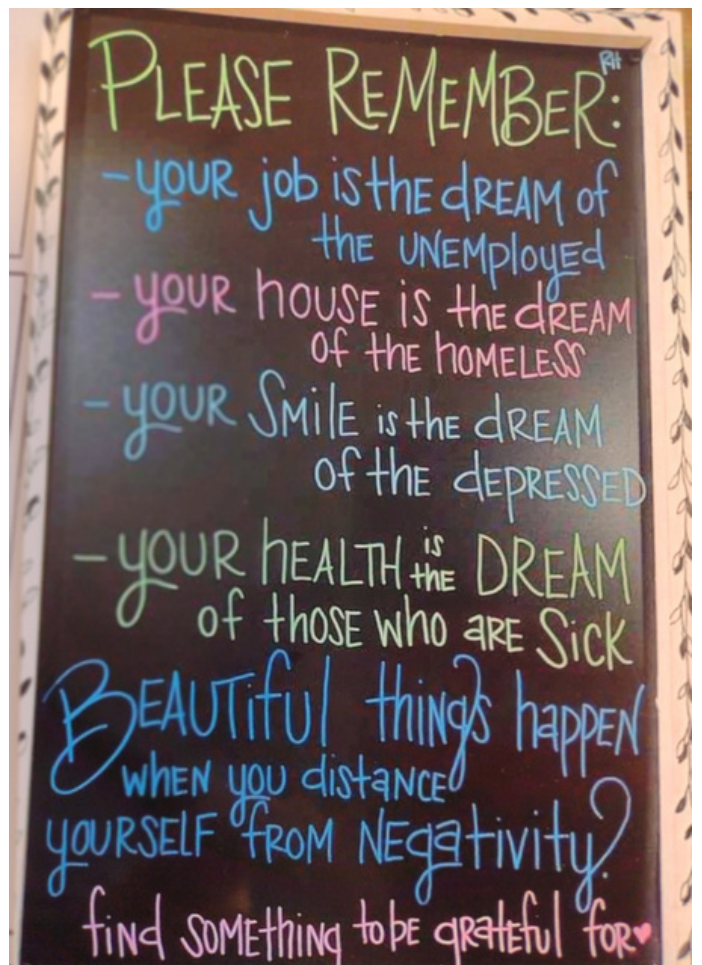 RH
PLEASE REMEMBER:
- YOUR job is the DREAM of
the UNEMployed
- YOUR hOUSE is the dREAM
Of the hOMELESS
- YOUR SMilE is the dREAM
Of the dEPRESSED
- YOUR hEALTH is the DREAM
of thOSE who ARE SicK
BEAUTiful things happEN
whEN you distANCE
yOURSELF fROM NEgativity?
find SOMEThiNg to bE gratEful fOR♥